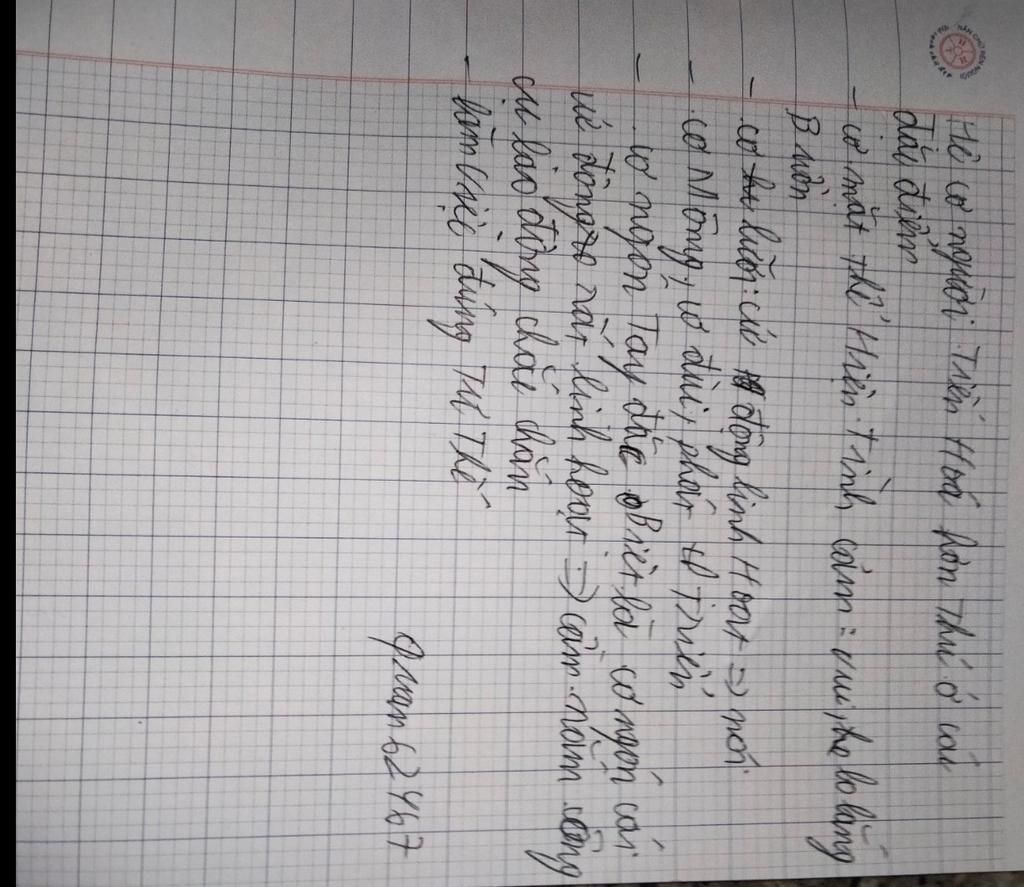 Hệ cơ người Tiến Hoá hơn Thú ở các
đặc điểm
- cơ mặt thể Hiện Tình cảm: vui, lo lắng
Buồn
- cơ lưỡi: cử động linh Hoạt => nói
- cơ Mông, cơ đùi, phát Triển
- cơ ngón Tay đặc Biệt là cơ ngón cái
cử động rất linh hoạt => cầm nắm công
cụ lao động chắc chắn
- làm việc đúng Tư Thế